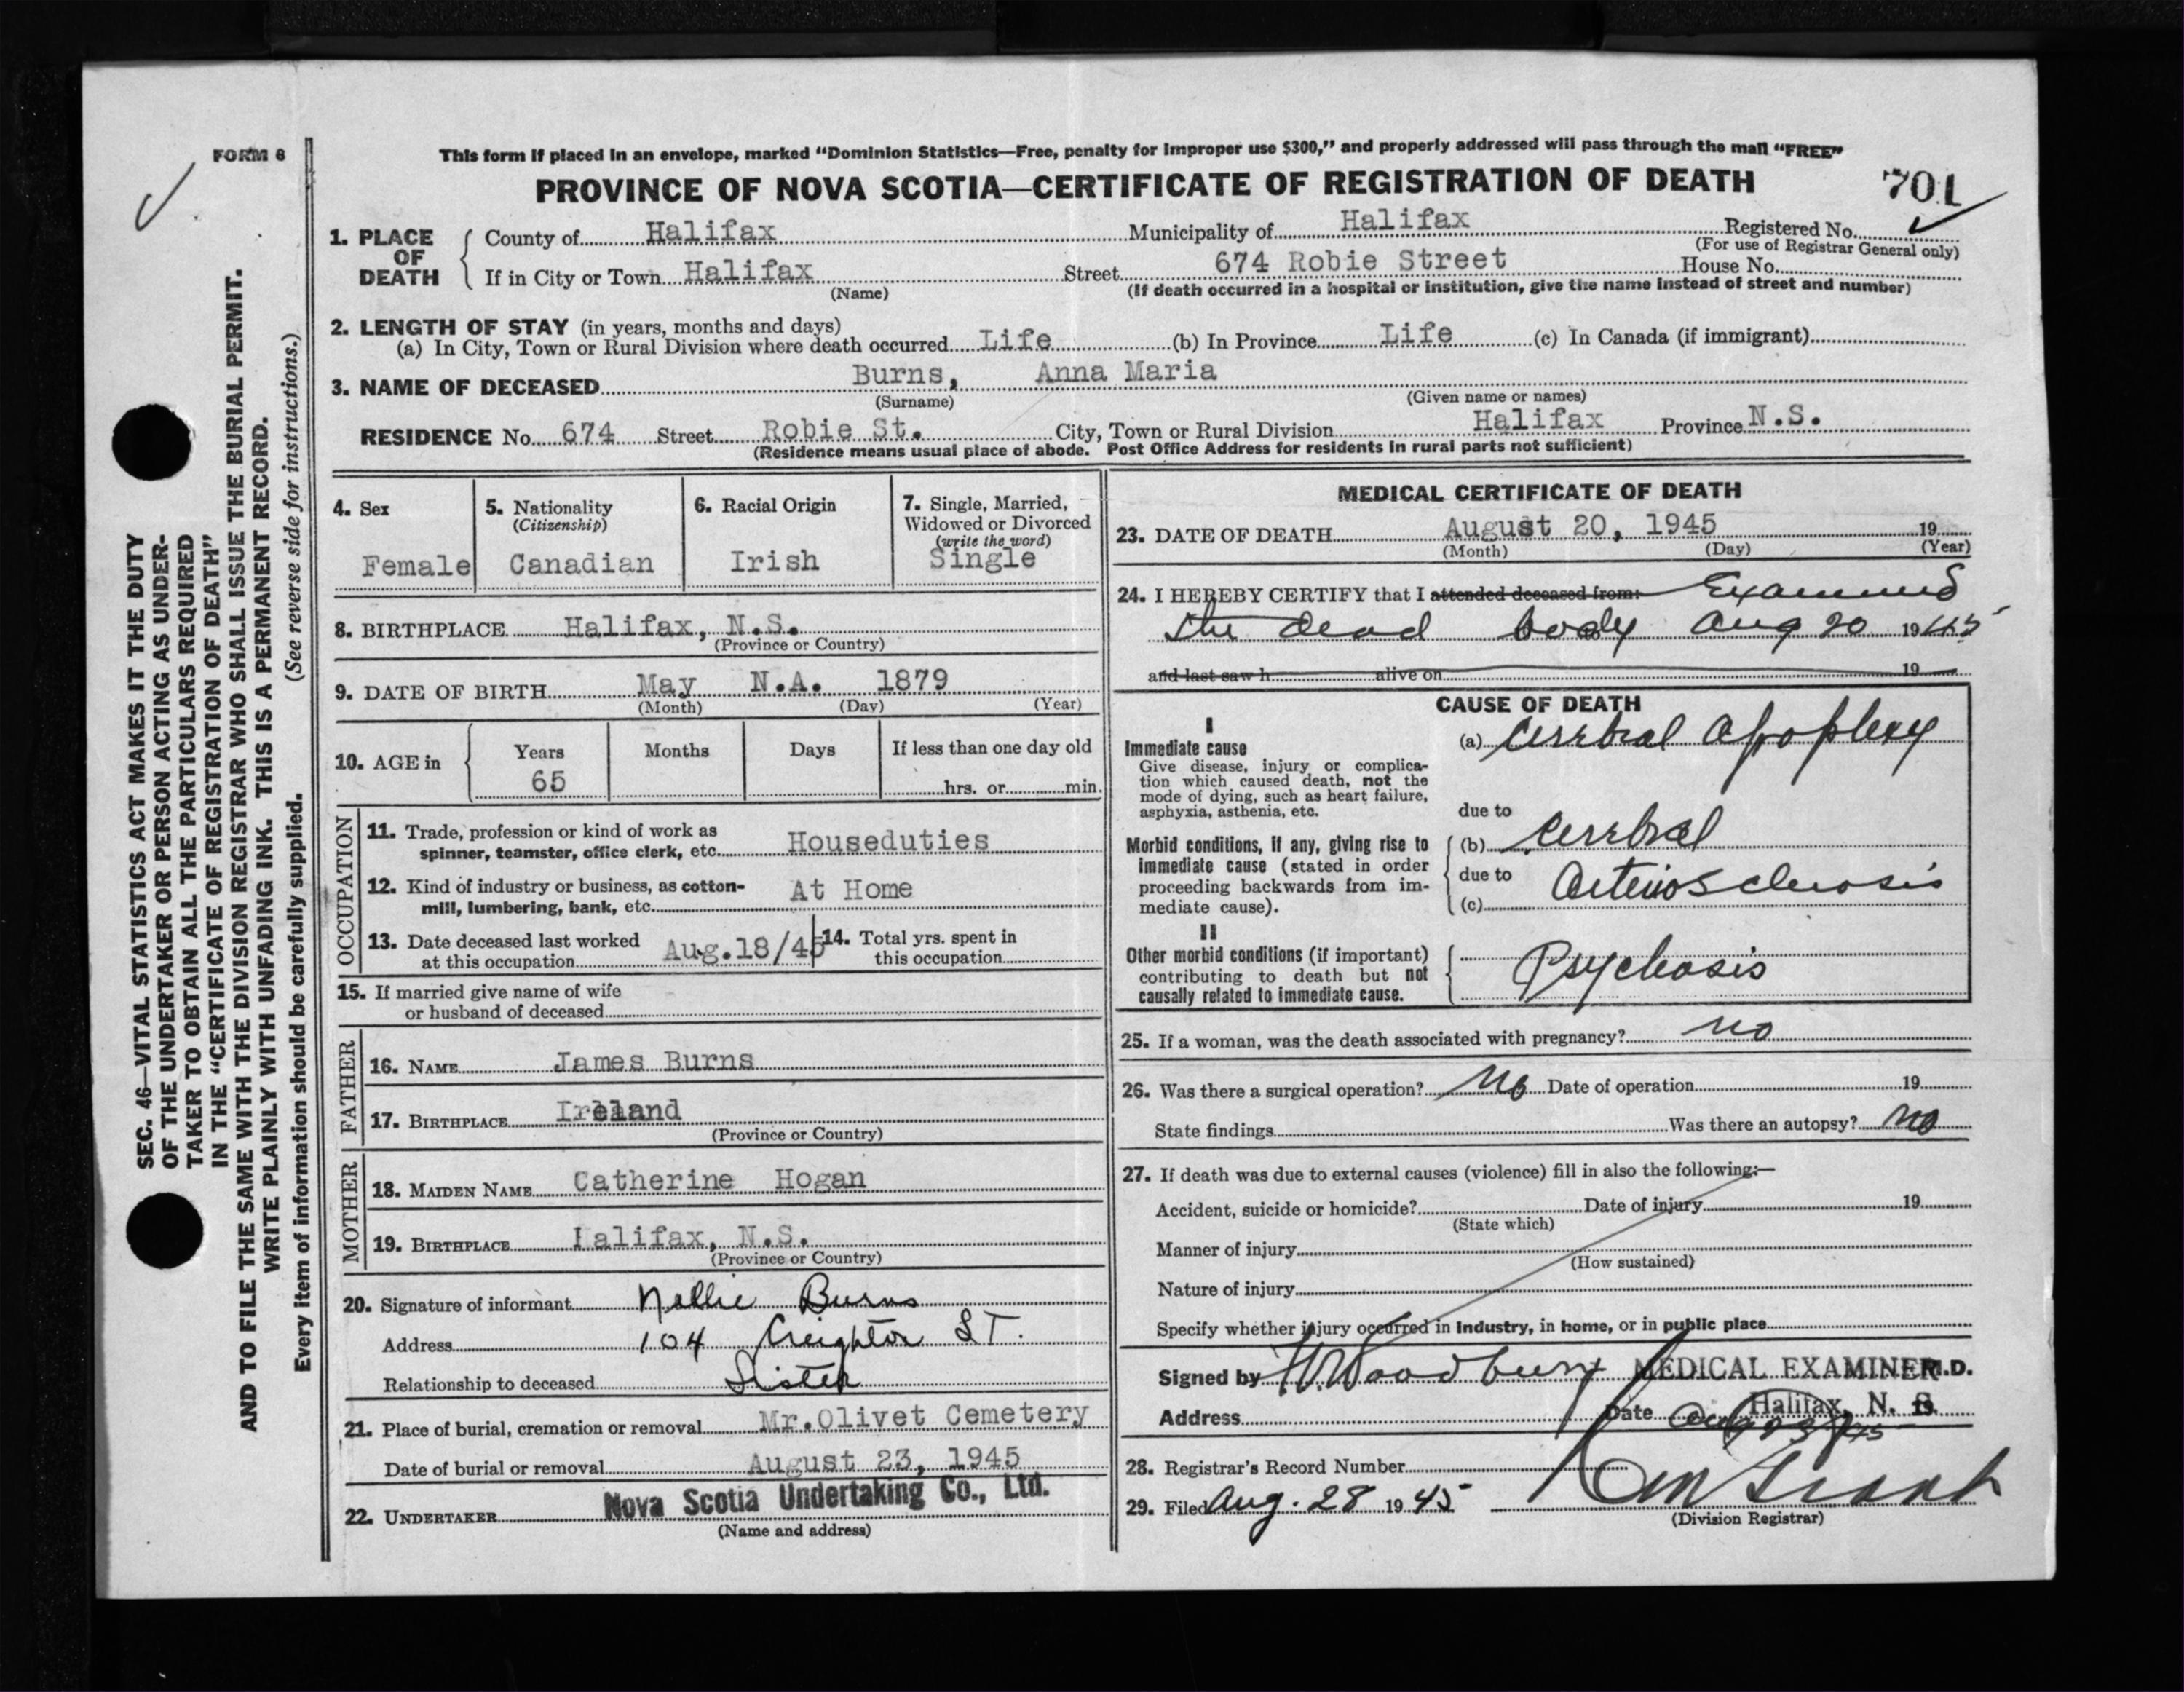 FORM 6
This form if placed in an envelope, marked “Dominion Statistics—Free, penalty for improper use $300,” and properly addressed will pass through the mail “FREE”
PROVINCE OF NOVA SCOTIA—CERTIFICATE OF REGISTRATION OF DEATH
701
1. PLACE OF DEATH
County of Halifax Municipality of Halifax Registered No.
(For use of Registrar General only)
If in City or Town Halifax Street 674 Robie Street House No.
(Name) (If death occurred in a hospital or institution, give the name instead of street and number)
2. LENGTH OF STAY (in years, months and days)
(a) In City, Town or Rural Division where death occurred Life (b) In Province Life (c) In Canada (if immigrant)
3. NAME OF DECEASED Burns, Anna Maria
(Surname) (Given name or names)
RESIDENCE No. 674 Street Robie St. City, Town or Rural Division Halifax Province N.S.
(Residence means usual place of abode. Post Office Address for residents in rural parts not sufficient)
4. Sex
Female
5. Nationality
(Citizenship)
Canadian
6. Racial Origin
Irish
7. Single, Married,
Widowed or Divorced
(write the word)
Single
8. BIRTHPLACE Halifax, N.S.
(Province or Country)
9. DATE OF BIRTH May N.A. 1879
(Month) (Day) (Year)
10. AGE in
Years Months Days If less than one day old
65 hrs. or min.
OCCUPATION
11. Trade, profession or kind of work as
spinner, teamster, office clerk, etc. Houseduties
12. Kind of industry or business, as cotton-
mill, lumbering, bank, etc. At Home
13. Date deceased last worked
at this occupation Aug.18/45
14. Total yrs. spent in
this occupation
15. If married give name of wife
or husband of deceased
FATHER
16. NAME James Burns
17. BIRTHPLACE Ireland
(Province or Country)
MOTHER
18. MAIDEN NAME Catherine Hogan
19. BIRTHPLACE Halifax, N.S.
(Province or Country)
20. Signature of informant Nellie Burns
Address 104 Creighton ST.
Relationship to deceased Sister
21. Place of burial, cremation or removal Mr.Olivet Cemetery
Date of burial or removal August 23, 1945
22. UNDERTAKER Nova Scotia Undertaking Co., Ltd.
(Name and address)
MEDICAL CERTIFICATE OF DEATH
23. DATE OF DEATH August 20, 1945 19
(Month) (Day) (Year)
24. I HEREBY CERTIFY that I attended deceased from: Examined
the dead body Aug 20 1945
and last saw h alive on 19
CAUSE OF DEATH
I
Immediate cause
Give disease, injury or complica-
tion which caused death, not the
mode of dying, such as heart failure,
asphyxia, asthenia, etc.
(a) Cerebral Apoplexy
due to
Morbid conditions, if any, giving rise to
immediate cause (stated in order
proceeding backwards from im-
mediate cause).
(b) Cerebral
due to
(c) Arterio Sclerosis
II
Other morbid conditions (if important)
contributing to death but not
causally related to immediate cause.
Psychosis
25. If a woman, was the death associated with pregnancy? no
26. Was there a surgical operation? No Date of operation 19
State findings Was there an autopsy? no
27. If death was due to external causes (violence) fill in also the following:—
Accident, suicide or homicide? Date of injury 19
(State which)
Manner of injury
(How sustained)
Nature of injury
Specify whether injury occurred in industry, in home, or in public place
Signed by Woodbury MEDICAL EXAMINER M.D.
Address Date Halifax, N. S. 19
28. Registrar's Record Number
29. Filed Aug. 28 1945
(Division Registrar)
SEC. 46—VITAL STATISTICS ACT MAKES IT THE DUTY
OF THE UNDERTAKER OR PERSON ACTING AS UNDER-
TAKER TO OBTAIN ALL THE PARTICULARS REQUIRED
IN THE “CERTIFICATE OF REGISTRATION OF DEATH”
AND TO FILE THE SAME WITH THE DIVISION REGISTRAR WHO SHALL ISSUE THE BURIAL PERMIT.
WRITE PLAINLY WITH UNFADING INK. THIS IS A PERMANENT RECORD.
Every item of information should be carefully supplied. (See reverse side for instructions.)